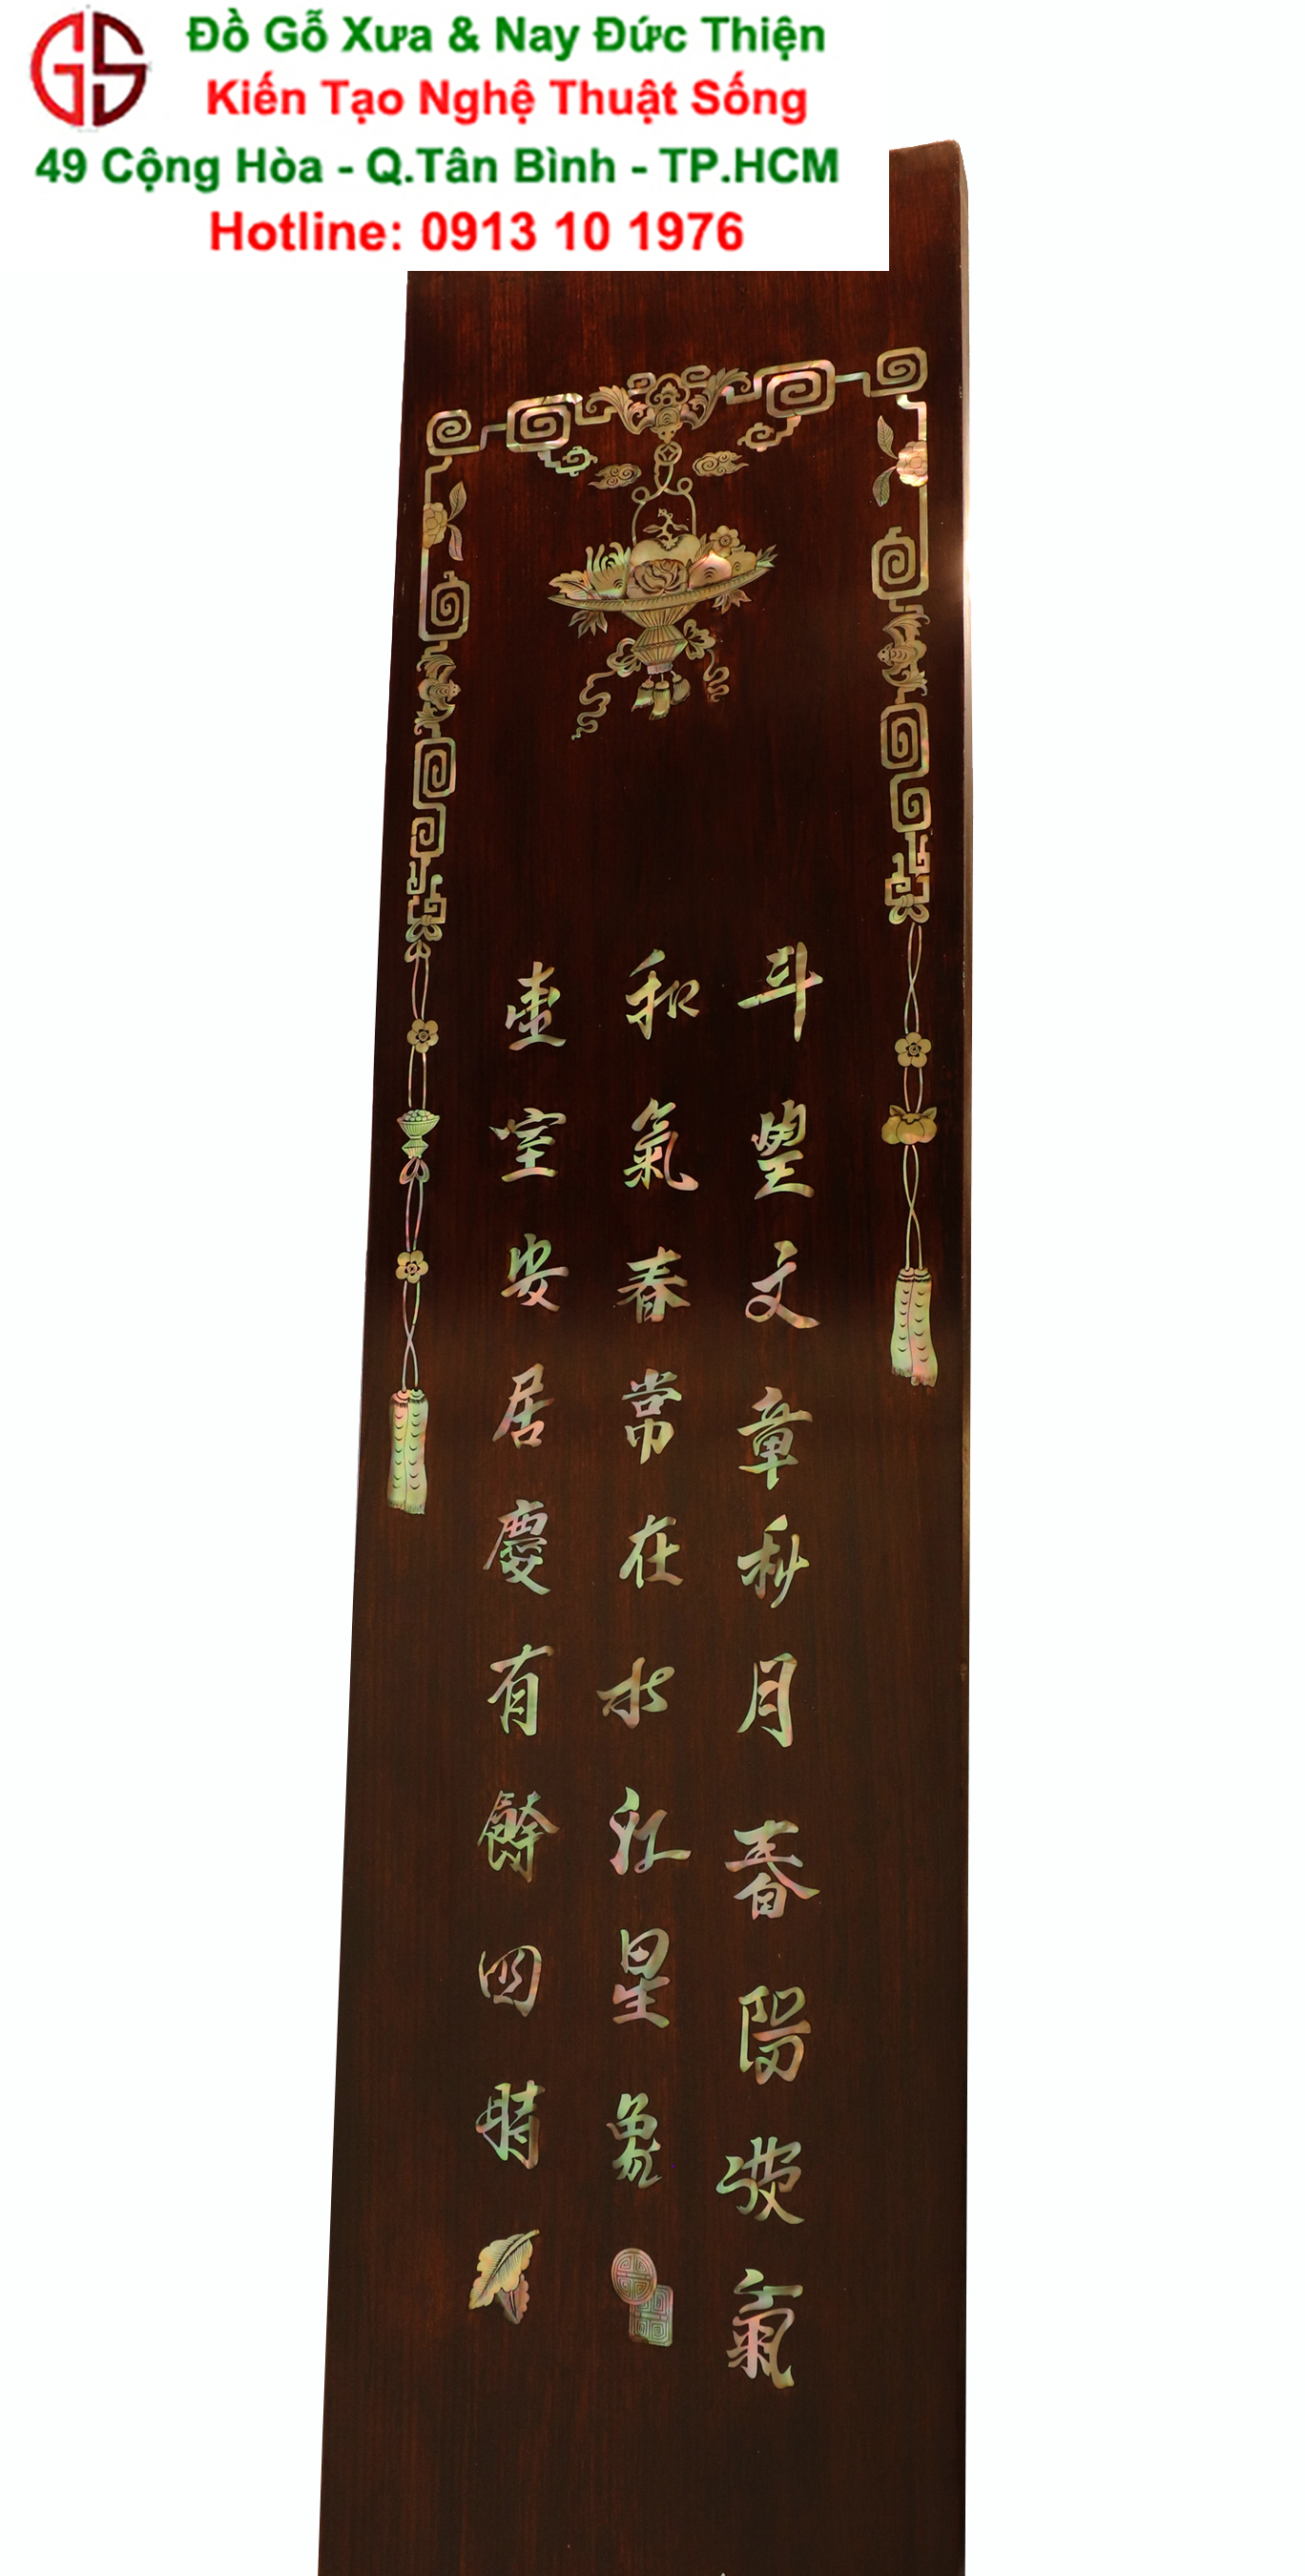 Đồ Gỗ Xưa & Nay Đức Thiện
Kiến Tạo Nghệ Thuật Sống
49 Cộng Hòa - Q.Tân Bình - TP.HCM
Hotline: 0913 10 1976
斗望文章秋月春陽氣
和氣春常在星象
室安居慶有餘四時